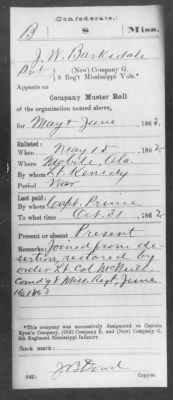 Confederate.
B 8 Miss.
J. W. Barksdale
Pvt, (New) Company G,
8 Reg't Mississippi Vols.*
Appears on
Company Muster Roll
of the organization named above,
for May & June, 1863.
Enlisted:
When May 15, 1862
Where Mobile, Ala.
By whom Lt. Kenedy
Period War
Last paid:
By whom Capt. Prince
To what time Oct. 31, 1862
Present or absent Present
Remarks: Joined from de-
sertion restored by
order Lt. Col McNeill
Comdg 8 Miss. Regt, June
16 1863
*This company was successively designated as Captain
Ryan's Company, (Old) Company E, and (New) Company G,
8th Regiment Mississippi Infantry.
Book mark:
(642)
Copyist.